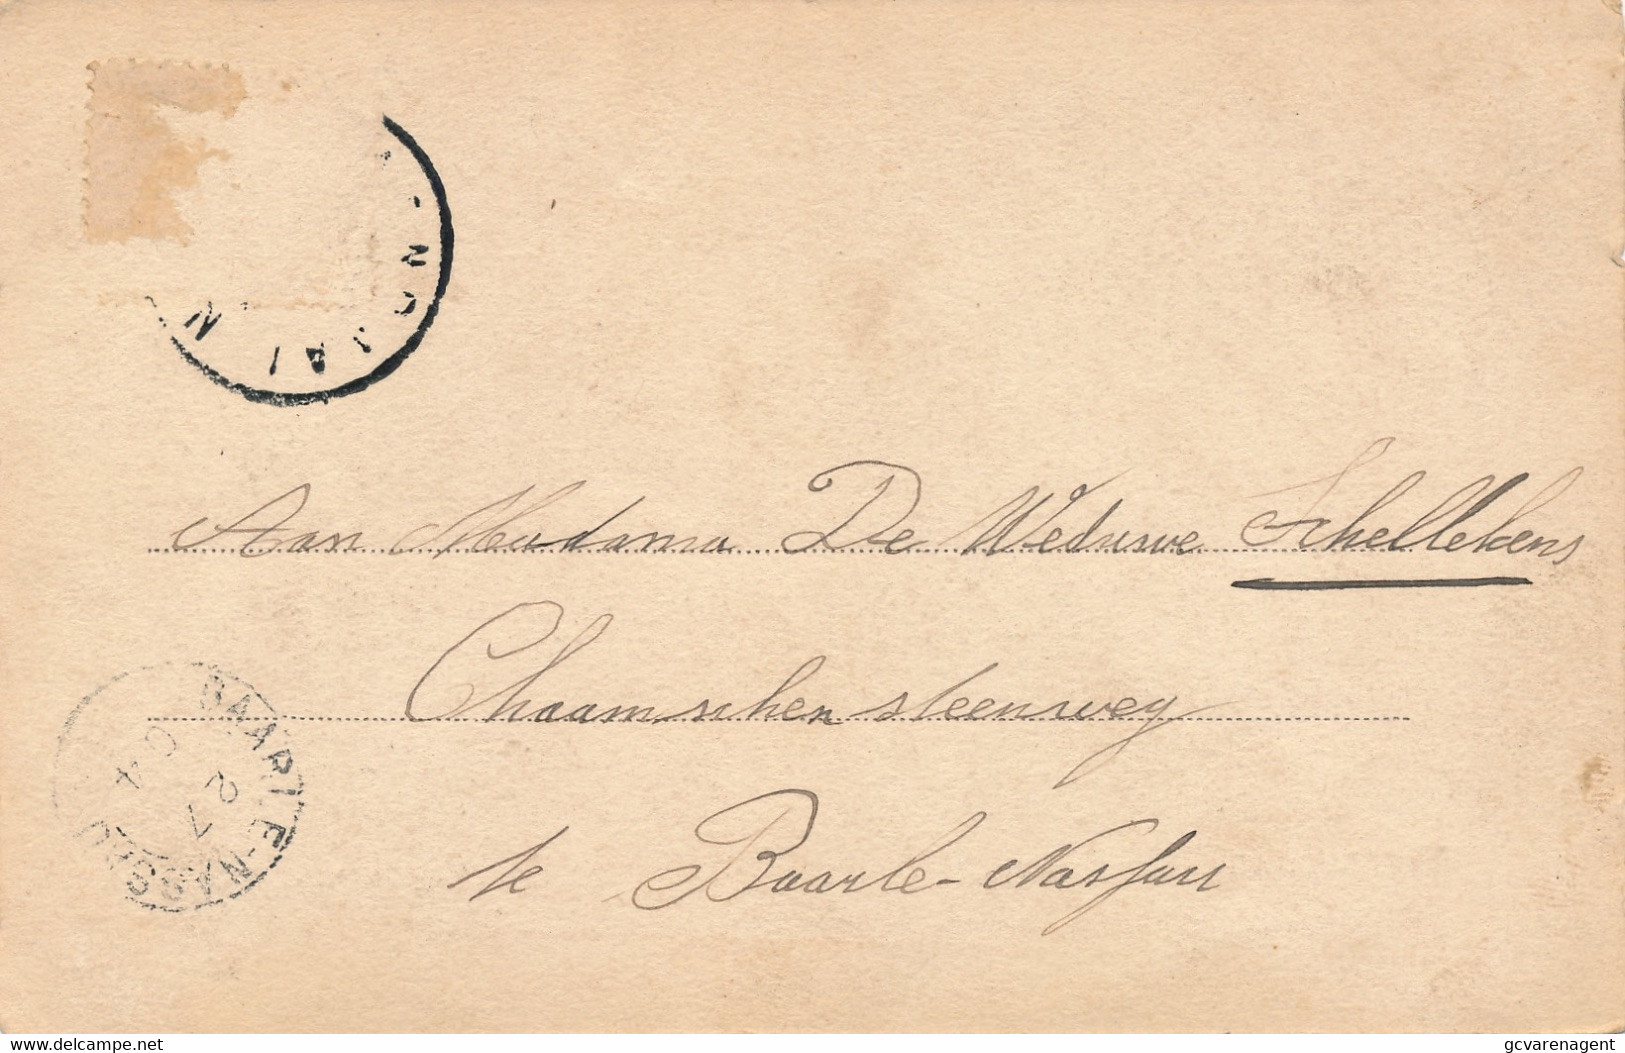 Aan Madama De Weduwe Schellekens
Chaamschen steenweg
te Baarle-Nassau
BAARLE-NASSAU
27
04
www.delcampe.net
gcvarenagent